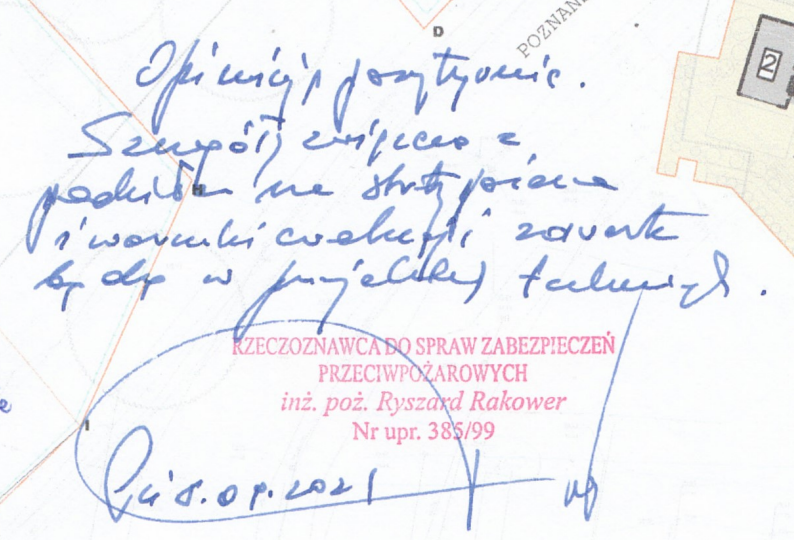 D
POZNAŃ
2
Opiniuję pozytywnie.
Szczegóły związane z
podziałem na strefy pożarowe
i warunki ewakuacji zawarte
będą w projektach technicznych.
H
RZECZOZNAWCA DO SPRAW ZABEZPIECZEŃ
PRZECIWPOŻAROWYCH
inż. poż. Ryszard Rakower
Nr upr. 385/99
I
2021